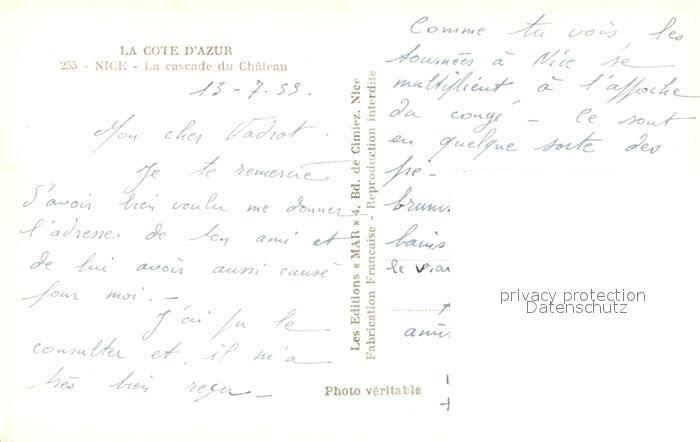 LA COTE D'AZUR
255 - NICE - La cascade du Château
13-7.53.
Mon cher Vadrot.
Je te remercie
d'avoir bien voulu me donner
l'adresse de ton ami et
de lui avoir aussi causé
pour moi. -
J'ai pu le
consulter et il m'a
très bien reçu -
Les Editions « MAR » 4, Bd. de Cimiez. Nice
Fabrication Française - Reproduction interdite
Photo véritable
Comme tu vois, les
tournées à Nice se
multiplient à l'approche
du congé - Ce sont
en quelque sorte des
pré-
bains
le
privacy protection
Datenschutz